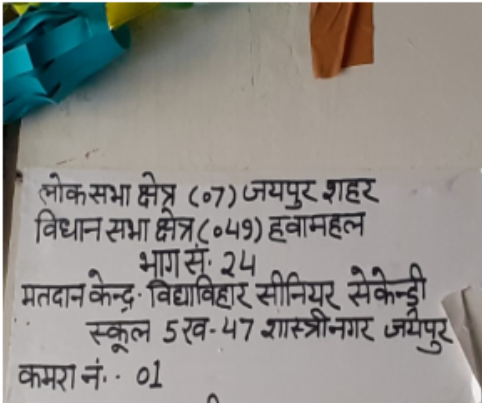 लोक सभा क्षेत्र (07) जयपुर शहर
विधान सभा क्षेत्र (049) हवामहल
भाग सं. 24
मतदान केन्द्र. विद्याविहार सीनियर सेकेन्ड्री
स्कूल 5ख-47 शास्त्रीनगर जयपुर
कमरा नं.. 01